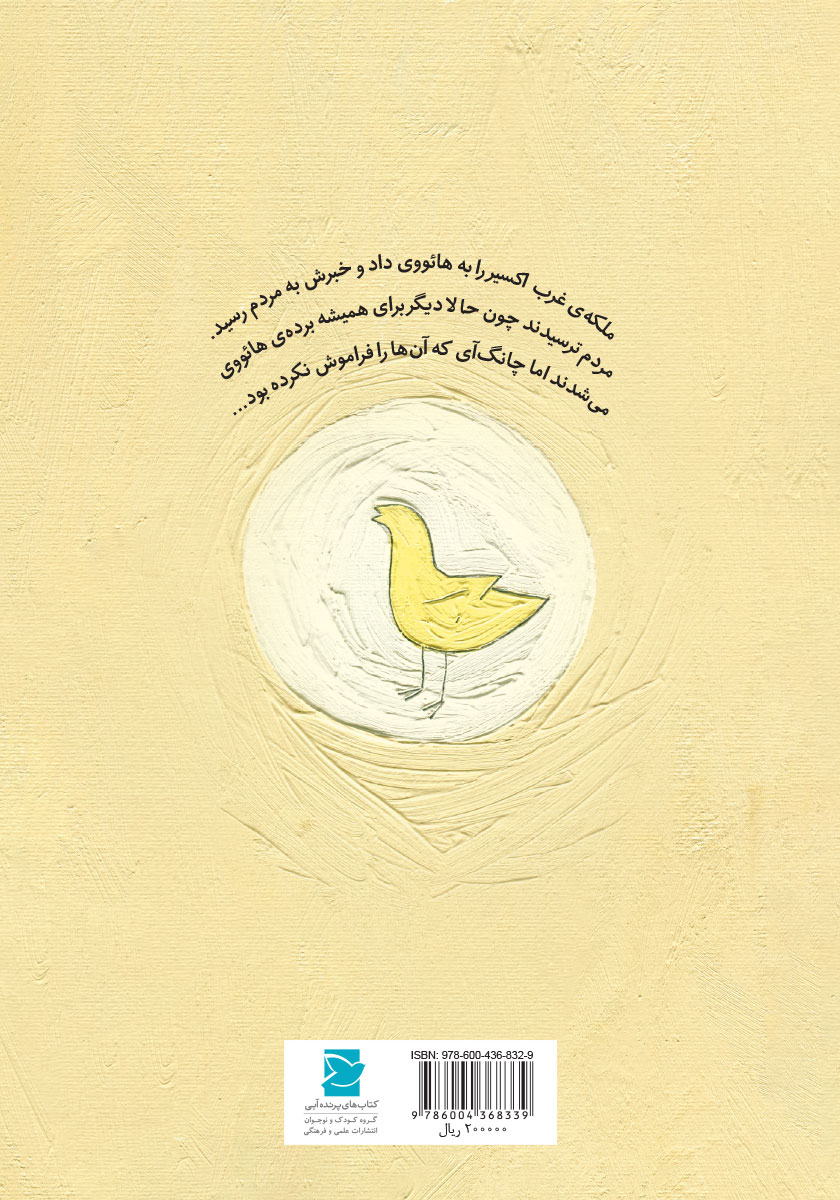 ملکه‌ی غرب اکسیر را به هائووی داد و خبرش به مردم رسید.
مردم ترسیدند چون حالا دیگر برای همیشه برده‌ی هائووی
می‌شدند اما چانگ‌آی که آن‌ها را فراموش نکرده بود...
ISBN: 978-600-436-832-9
9 786004 368339
۲۰۰۰۰۰ ریال
کتاب‌های پرنده آبی
گروه کودک و نوجوان
انتشارات علمی و فرهنگی